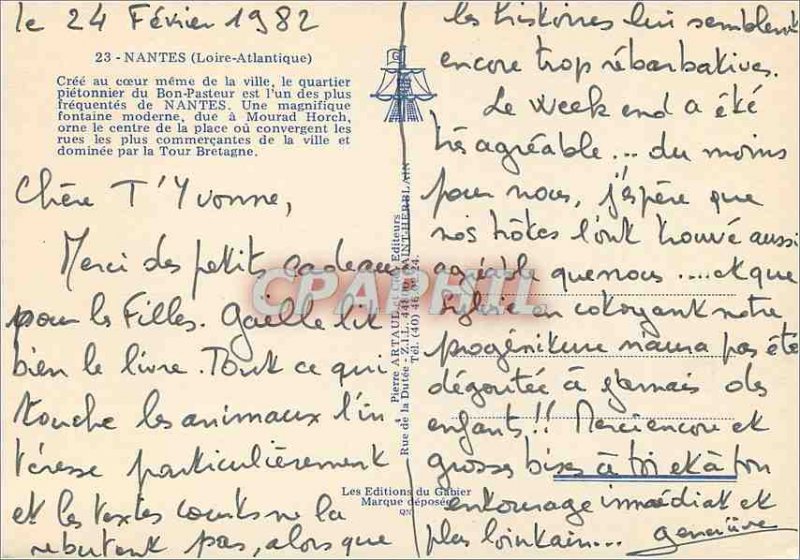 le 24 Février 1982
23 - NANTES (Loire-Atlantique)
Créé au cœur même de la ville, le quartier
piétonnier du Bon-Pasteur est l'un des plus
fréquentés de NANTES. Une magnifique
fontaine moderne, due à Mourad Horch,
orne le centre de la place où convergent les
rues les plus commerçantes de la ville et
dominée par la Tour Bretagne.
Chère T'Yvonne,
Merci des petits cadeaux
pour les Filles. Gaëlle lit
bien le livre. Tout ce qui
touche les animaux l'in
téresse particulièrement
et les textes courts ne la
rebutent pas, alors que
Pierre ARTAUD et Cie, Editeurs
Rue de la Dutée - Z.I.L. 44800 SAINT-HERBLAIN
Tél. (40) 46.24.
Les Editions du Gabier
Marque déposée
les histoires lui semblent
encore trop rébarbatives.
Le week end a été
très agréable... du moins
pour nous, j'espère que
nos hôtes l'ont trouvé aussi
agréable que nous .... et que
Sylvie en cotoyant notre
progéniture n'aura pas été
dégoutée à jamais des
enfants!! Merci encore et
grosses bises à toi et à ton
entourage immédiat et
plus lointain... Geneviève
CPAPHIL